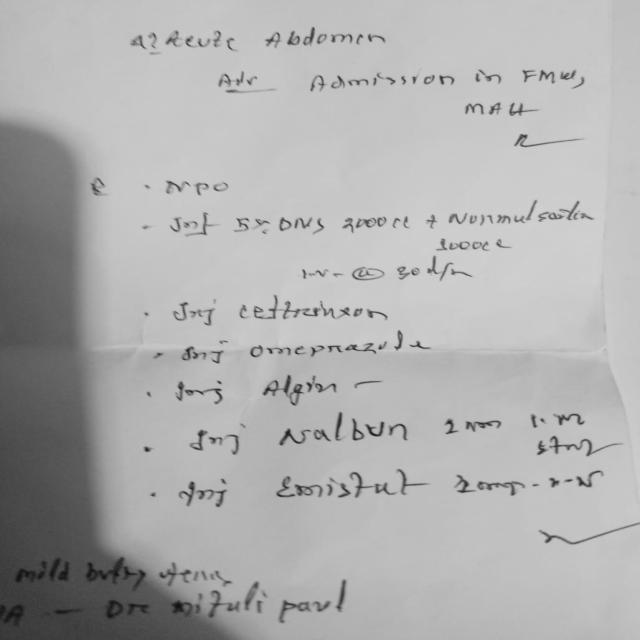 Acute Abdomen
Adv Admission in FMW,
MAH
. NPO
. Inf 5% DNS 2000cc + Normal saline
1000cc
I.V. @ 30 d/m
. Inj ceftriaxon
. Inj omeprazole
. Inj Algin —
. Inj Nalbun I.M
stat
. Inj Emistat
mild
— Dr mituli paul